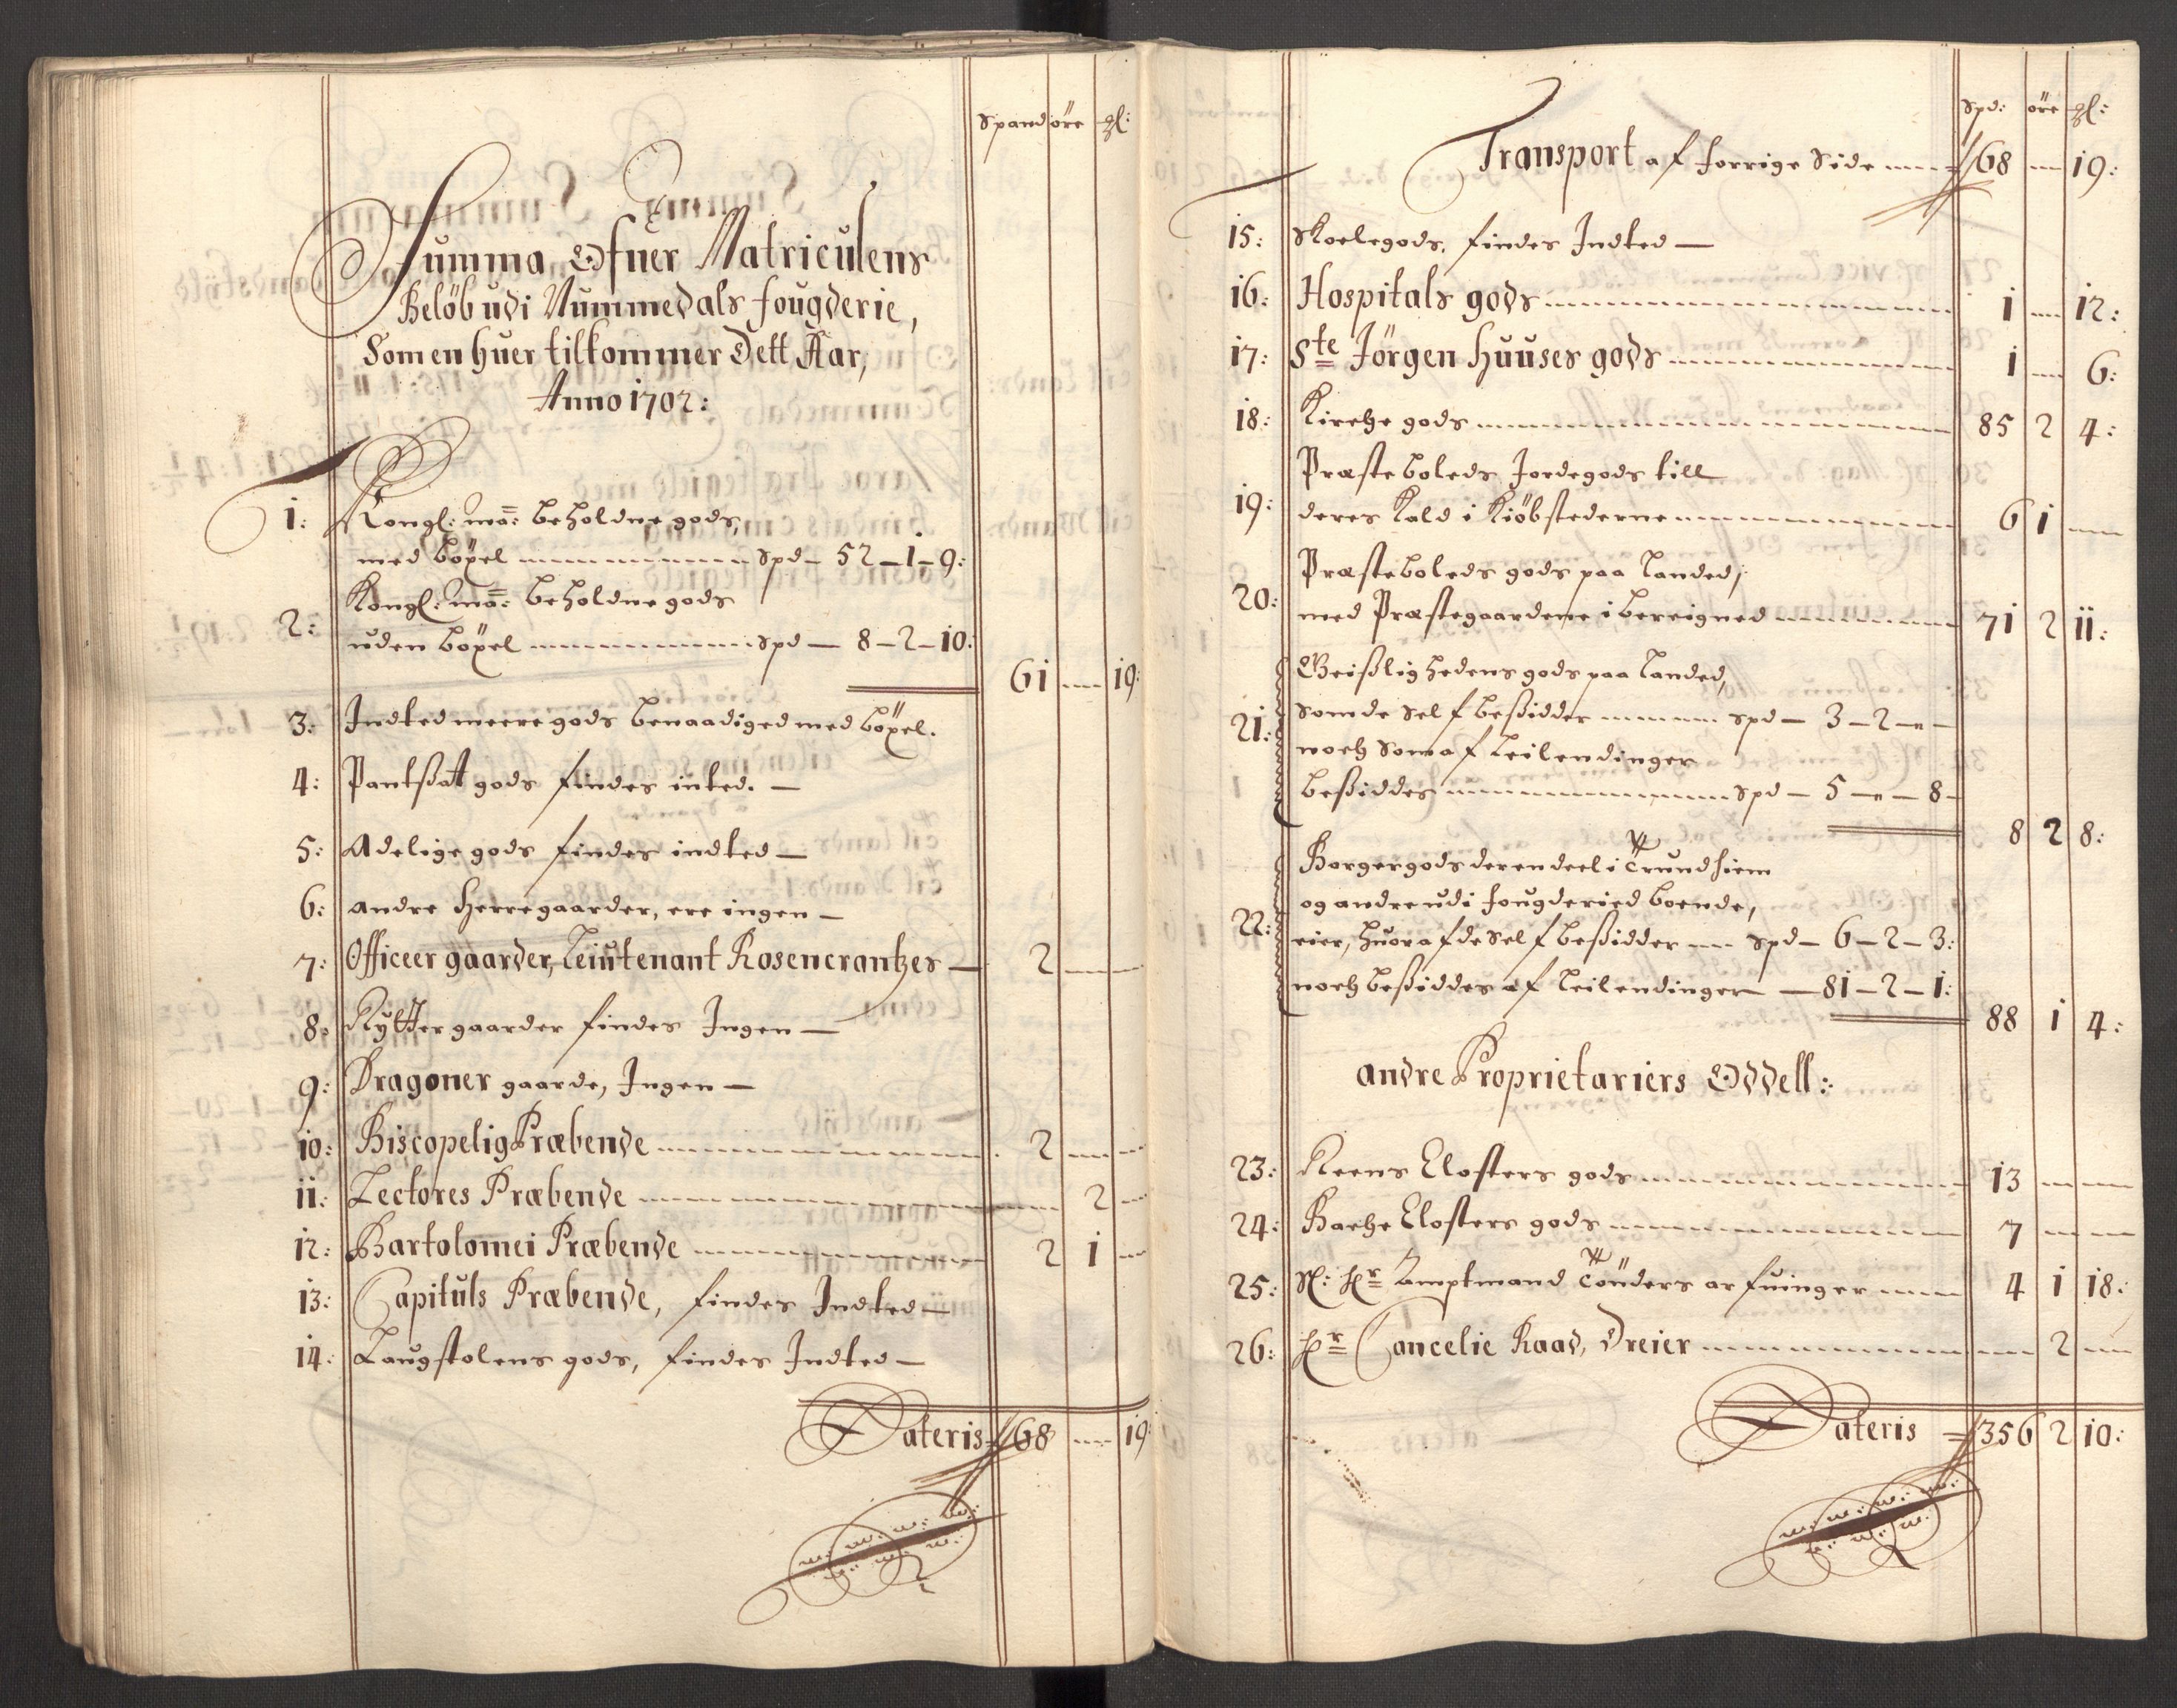 Spand öre gl:
Summa Ofuer Matriculens
Belöb udi Nummedals fougderie,
Som en huer tilkommer Dett Aar,
Anno 1702:
1: Kongl: ma: beholdne gods,
med böxel spd - 52 - 1 - 9:
2: Kongl: ma: beholdne gods
uden böxel spd - 8 - 2 - 10:
61 - 19:
3: Indted meere gods benaadiged med böxel.
4: Pantsat gods findes inted. -
5: Adelige gods findes indted -
6: andre Herregaarder, ere ingen -
7: Officeer gaarder, Leiutenant Rosencrantzes - 2 - -
8: Rytter gaarder findes Ingen -
9: Dragoner gaarde, Ingen -
10: Biscopelig Præbende 2 - -
11: Lectores Præbende - 2 -
12: Bartolomei Præbende 2 1 -
13: Capituls Præbende, findes Indted -
14: Laugstolens gods, findes Indted -
Lateris 68 - 19:
Spd: öre gl:
Transport af forrige Side 68 - 19:
15: Skoelegods, findes Indted -
16: Hospitals gods 1 - 12:
17: Ste Jörgen Huuses gods 1 - 6:
18: Kirche gods 85 2 4:
Præsteboleds Jordegods till
19: deres Kald i Kiöbstederne 6 1 -
Præsteboleds gods paa Landed,
20: med Præstegaardene i bereigned 71 2 11:
Geistlighedens gods paa Landed,
21: som de self besidder spd - 3 - 2 - " -
noch som af Leilendinger
besiddes spd - 5 - " - 8 -
8 2 8:
Borgergods der en deel i Trundhiem
og andre udi fougderied boende,
22: eier, huoraf de self besidder spd - 6 - 2 - 3:
noch besiddes af Leilendinger - 81 - 2 - 1:
88 1 4:
andre Proprietariers Oddell:
23: Reens Closters gods 13 - -
24: Bache Closters gods 7 - -
25: Sl: Hr Amptmand Tönders arfuinger 4 1 18:
26: Hr Cancelie Raad, Dreier - 2 -
Lateris 356 2 10: